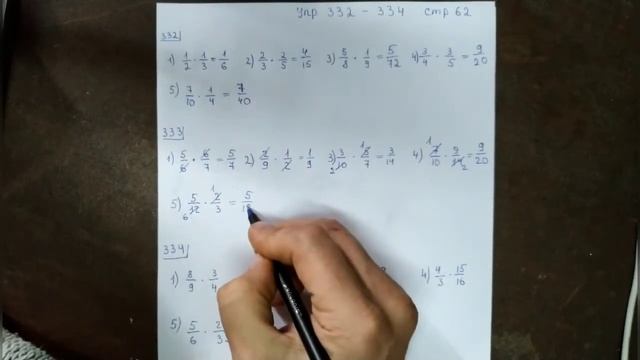 Упр 332 - 334 стр 62
332
1) 1/2 · 1/3 = 1/6 2) 2/3 · 2/5 = 4/15 3) 5/8 · 1/9 = 5/72 4) 3/4 · 3/5 = 9/20
5) 7/10 · 1/4 = 7/40
333
1) 5/6 · 6/7 = 5/7 2) 2/9 · 1/2 = 1/9 3) 3/10 2 · 5 1/7 = 3/14 4) 1 7/10 · 9/14 2 = 9/20
5) 5/12 6 · 1 2/3 = 5/18
334
1) 8/9 · 3/4 4) 4/3 · 15/16
5) 5/6 · 2/3